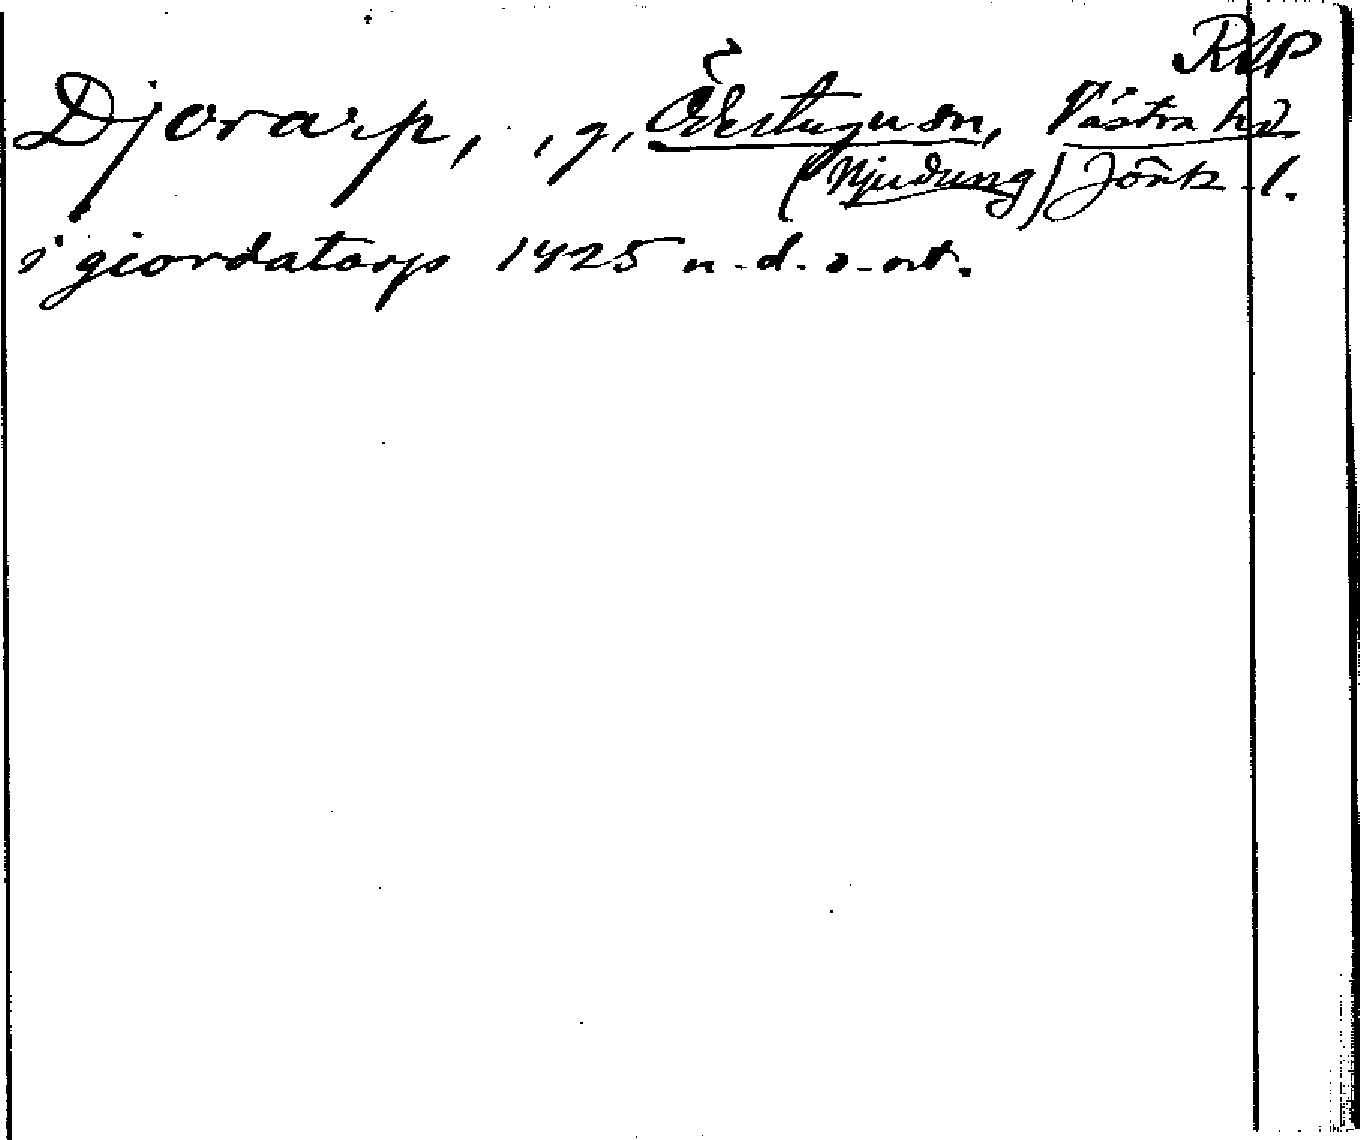 RAP
Djorap, , g,
Västra hd
(Njudung) Jönk l.
i giordatorp 1425 n. d. o. ort.